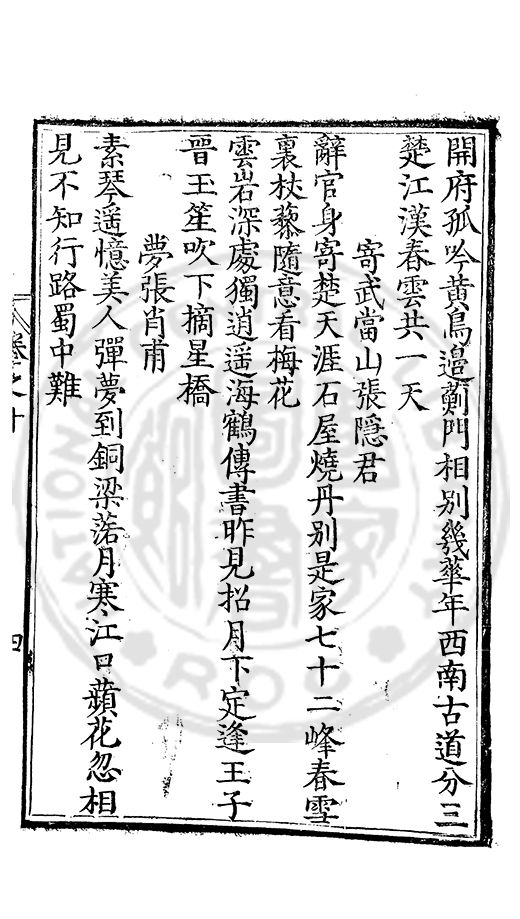 開府孤吟黄鳥邊薊門相別幾華年西南古道分三
楚江漢春雲共一天
寄武當山張隱君
辭官身寄楚天涯石屋燒丹別是家七十二峰春雪
裏杖藜隨意看梅花
雲岩深處獨逍遥海鶴傳書昨見招月下定逢王子
晋玉笙吹下摘星橋
夢張肖甫
素琴遥憶美人彈夢到銅梁落月寒江口蘋花忽相
見不知行路蜀中難
卷之十
四